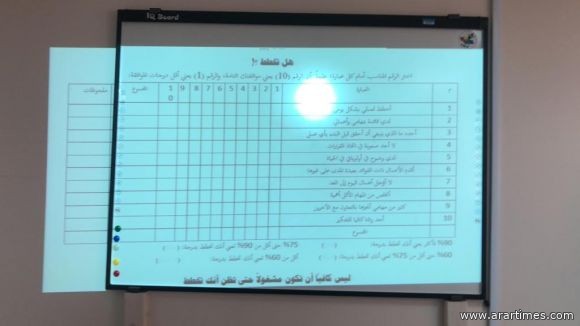 IQ Board
هل تخطط ؟!
اختر الرقم المناسب أمام كل عبارة علماً أن الرقم (10) يعني موافقتك التامة، والرقم (1) يعني أقل درجات الموافقة:
م العبارة 1 2 3 4 5 6 7 8 9 10 المجموع ملحوظات
1 أخطط لعملي بشكل يومي
2 لدي قائمة بمهامي وأعمالي
3 أحدد ما الذي ينبغي أن أحققه قبل البدء بأي عمل
4 لا أجد صعوبة في اتخاذ القرارات
5 لدي وضوح في أولوياتي في الحياة
6 أقدم الأعمال ذات الفوائد بعيدة المدى على غيرها
7 لا أؤجل أعمال اليوم إلى الغد
8 أتخلص من المهام الأقل أهمية
9 كثير من مهامي أنجزها بالتعاون مع الآخرين
10 أجد وقتا كافيا للتفكير
المجموع
90% فأكثر يعني أنك تخطط بدرجة: ( ) 75% حتى أقل من 90% تعني أنك تخطط بدرجة: ( )
60% حتى أقل من 75% تعني أنك تخطط بدرجة: ( ) أقل من 60% تعني أنك تخطط بدرجة: ( )
ليس كافياً أن تكون مشغولاً حتى تظن أنك تخطط
www.arartimes.com